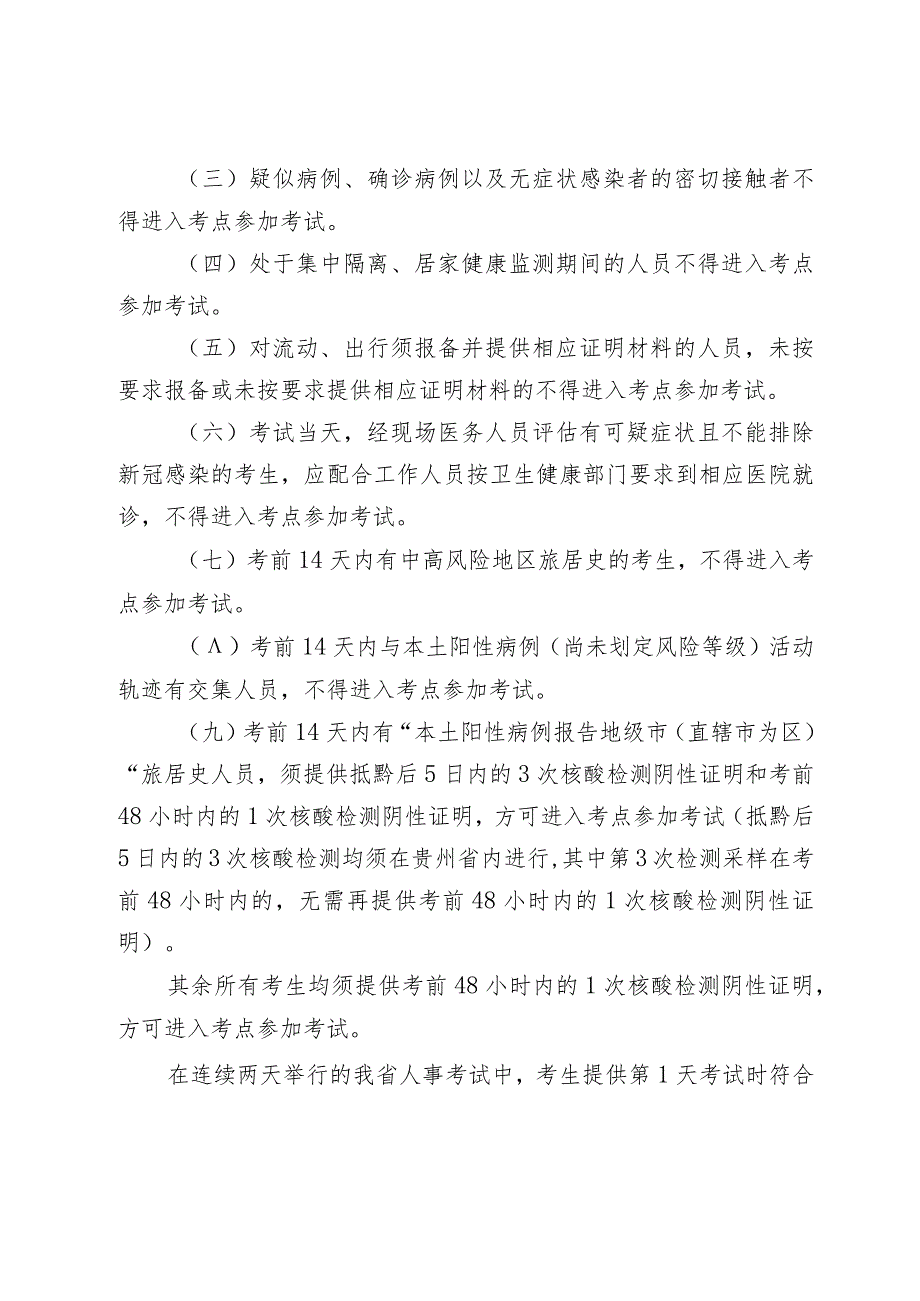 （三）疑似病例、确诊病例以及无症状感染者的密切接触者不
得进入考点参加考试。
（四）处于集中隔离、居家健康监测期间的人员不得进入考点
参加考试。
（五）对流动、出行须报备并提供相应证明材料的人员，未按
要求报备或未按要求提供相应证明材料的不得进入考点参加考试。
（六）考试当天，经现场医务人员评估有可疑症状且不能排除
新冠感染的考生，应配合工作人员按卫生健康部门要求到相应医院就
诊，不得进入考点参加考试。
（七）考前 14 天内有中高风险地区旅居史的考生，不得进入考
点参加考试。
（Λ）考前 14 天内与本土阳性病例（尚未划定风险等级）活动
轨迹有交集人员，不得进入考点参加考试。
（九）考前 14 天内有“本土阳性病例报告地级市（直辖市为区）
“旅居史人员，须提供抵黔后 5 日内的 3 次核酸检测阴性证明和考前
48 小时内的 1 次核酸检测阴性证明，方可进入考点参加考试（抵黔后
5 日内的 3 次核酸检测均须在贵州省内进行,其中第 3 次检测采样在考
前 48 小时内的，无需再提供考前 48 小时内的 1 次核酸检测阴性证
明）。
其余所有考生均须提供考前 48 小时内的 1 次核酸检测阴性证明，
方可进入考点参加考试。
在连续两天举行的我省人事考试中，考生提供第 1 天考试时符合